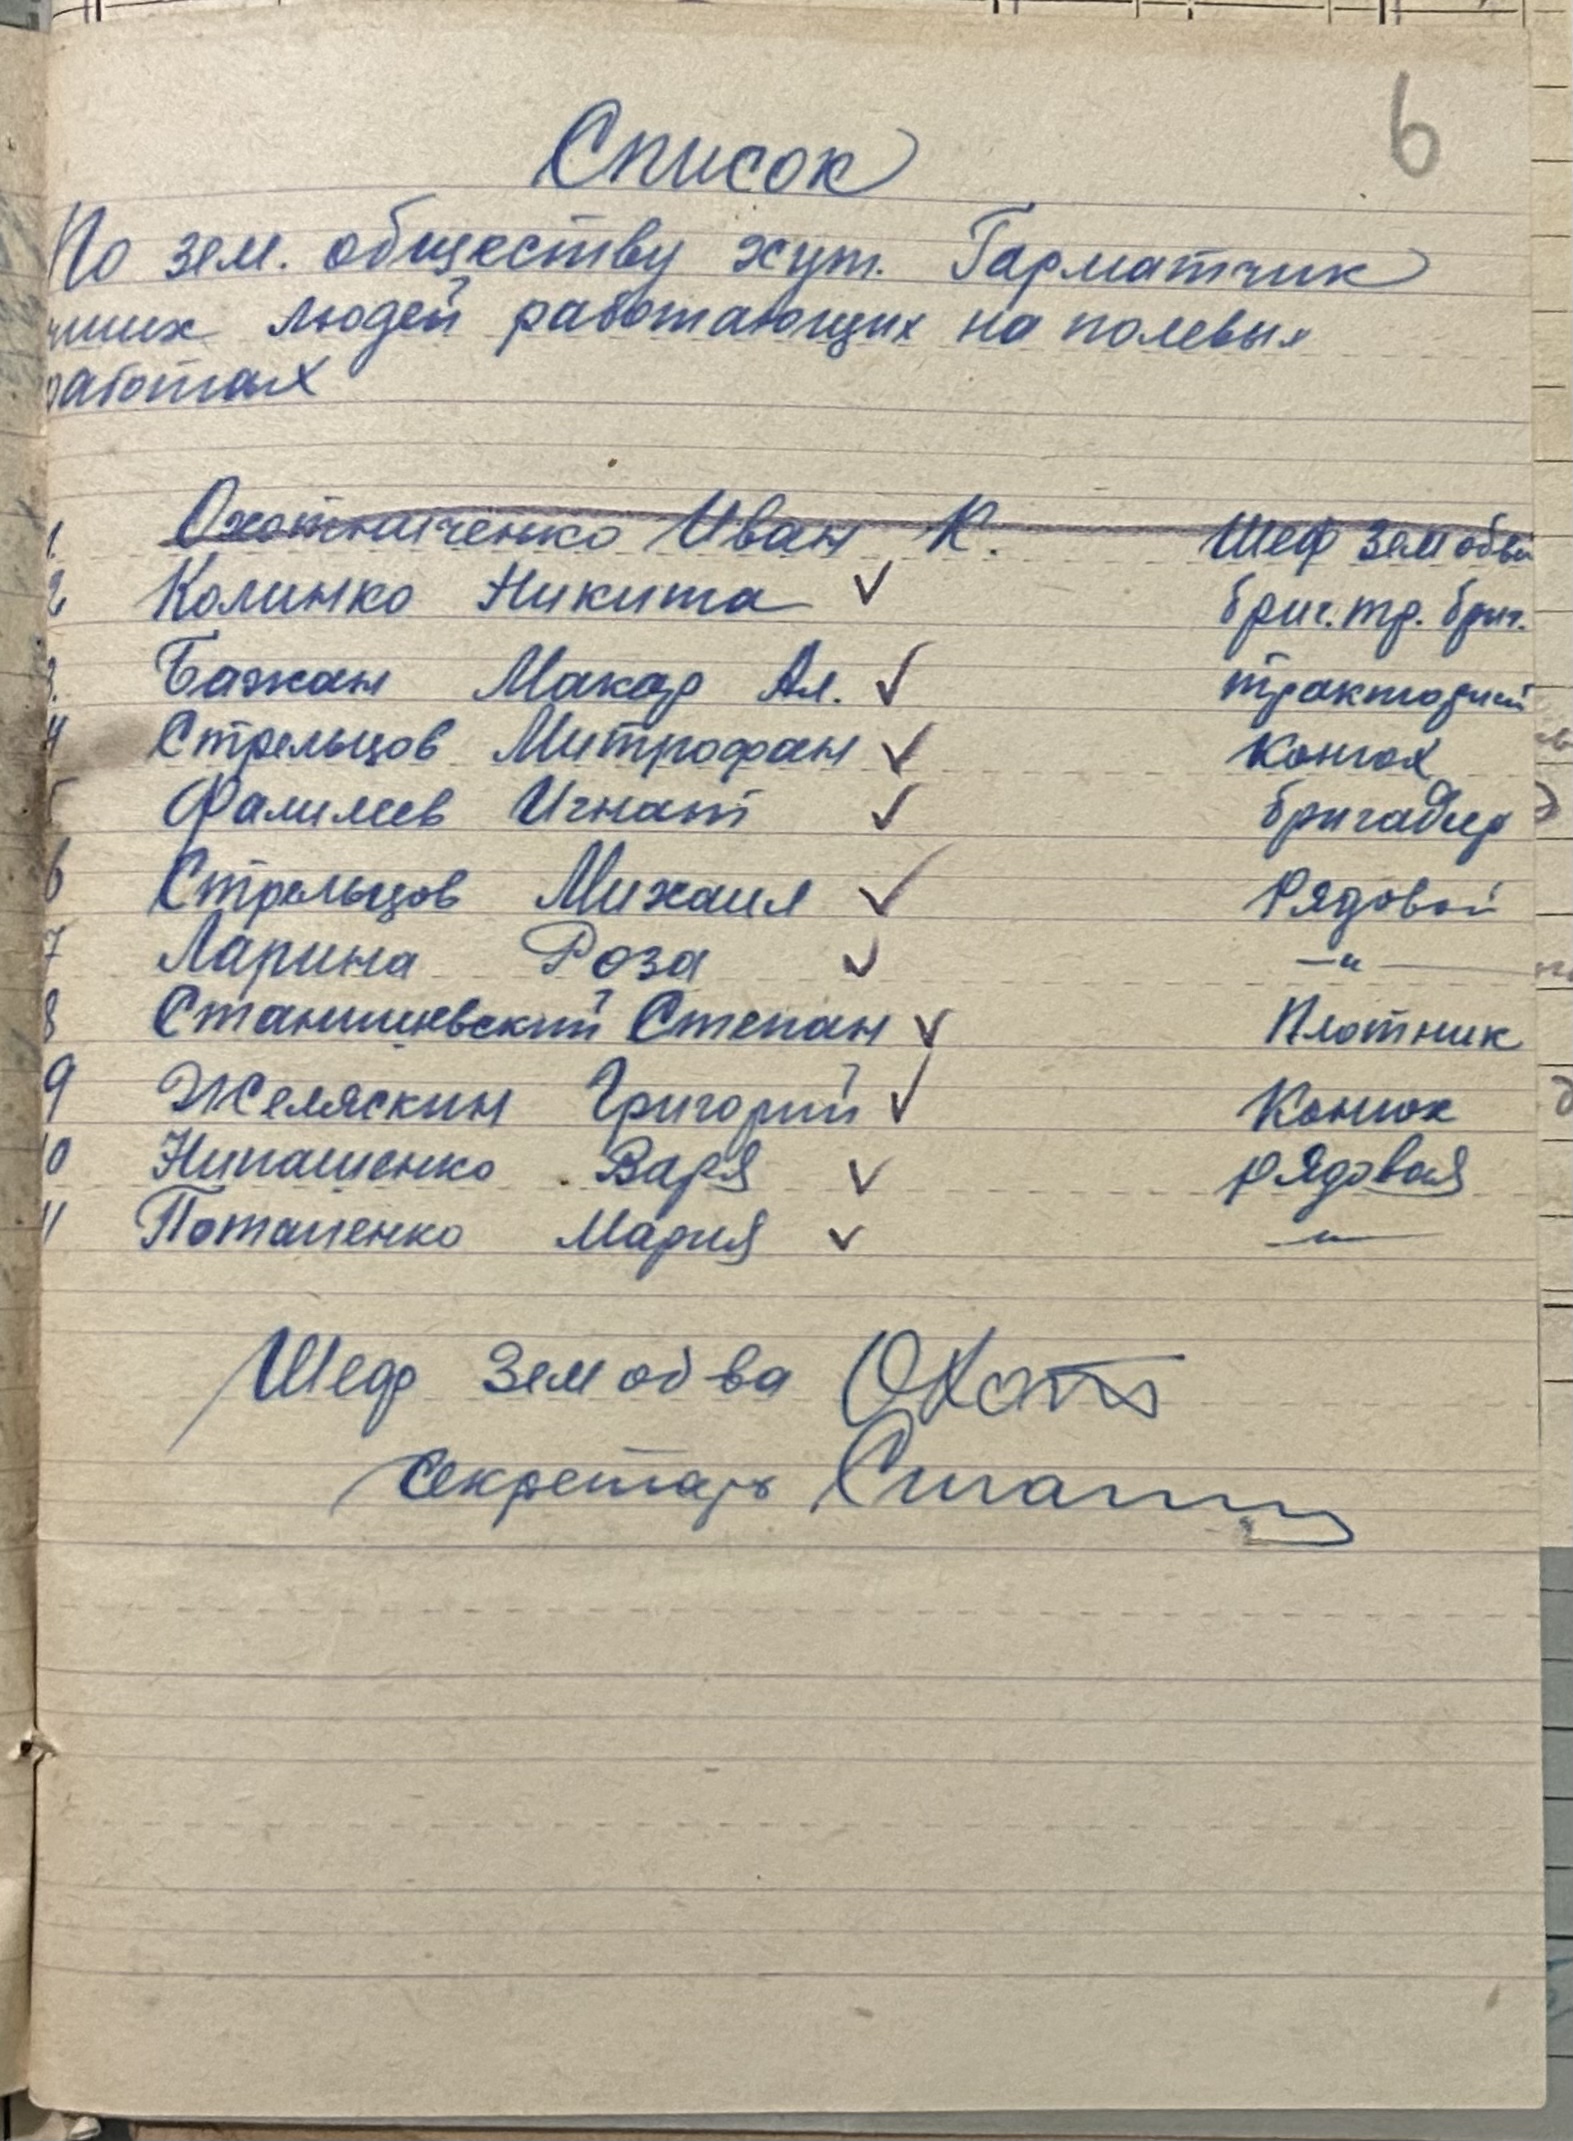 6
Список
По зем. обществу хут. Гарматчик
чших людей работающих на полевых
работах
1. Охотниченко Иван К. Шеф Земобва
2 Колинко Никита ✓ бриг. тр. бриг.
3. Бажан Макар Ал. ✓ тракторист
4 Стрельцов Митрофан ✓ Конюх
5 Фалилеев Игнат ✓ бригадир
6 Стрельцов Михаил ✓ Рядовой
7 Ларина Роза ✓ —"—
8 Станишевский Степан ✓ Плотник
9 Желяскин Григорий ✓ Конюх
10 Нипашенко Варя ✓ рядовая
11 Потапенко Мария ✓ —"—
Шеф Земобва Охот
секретарь